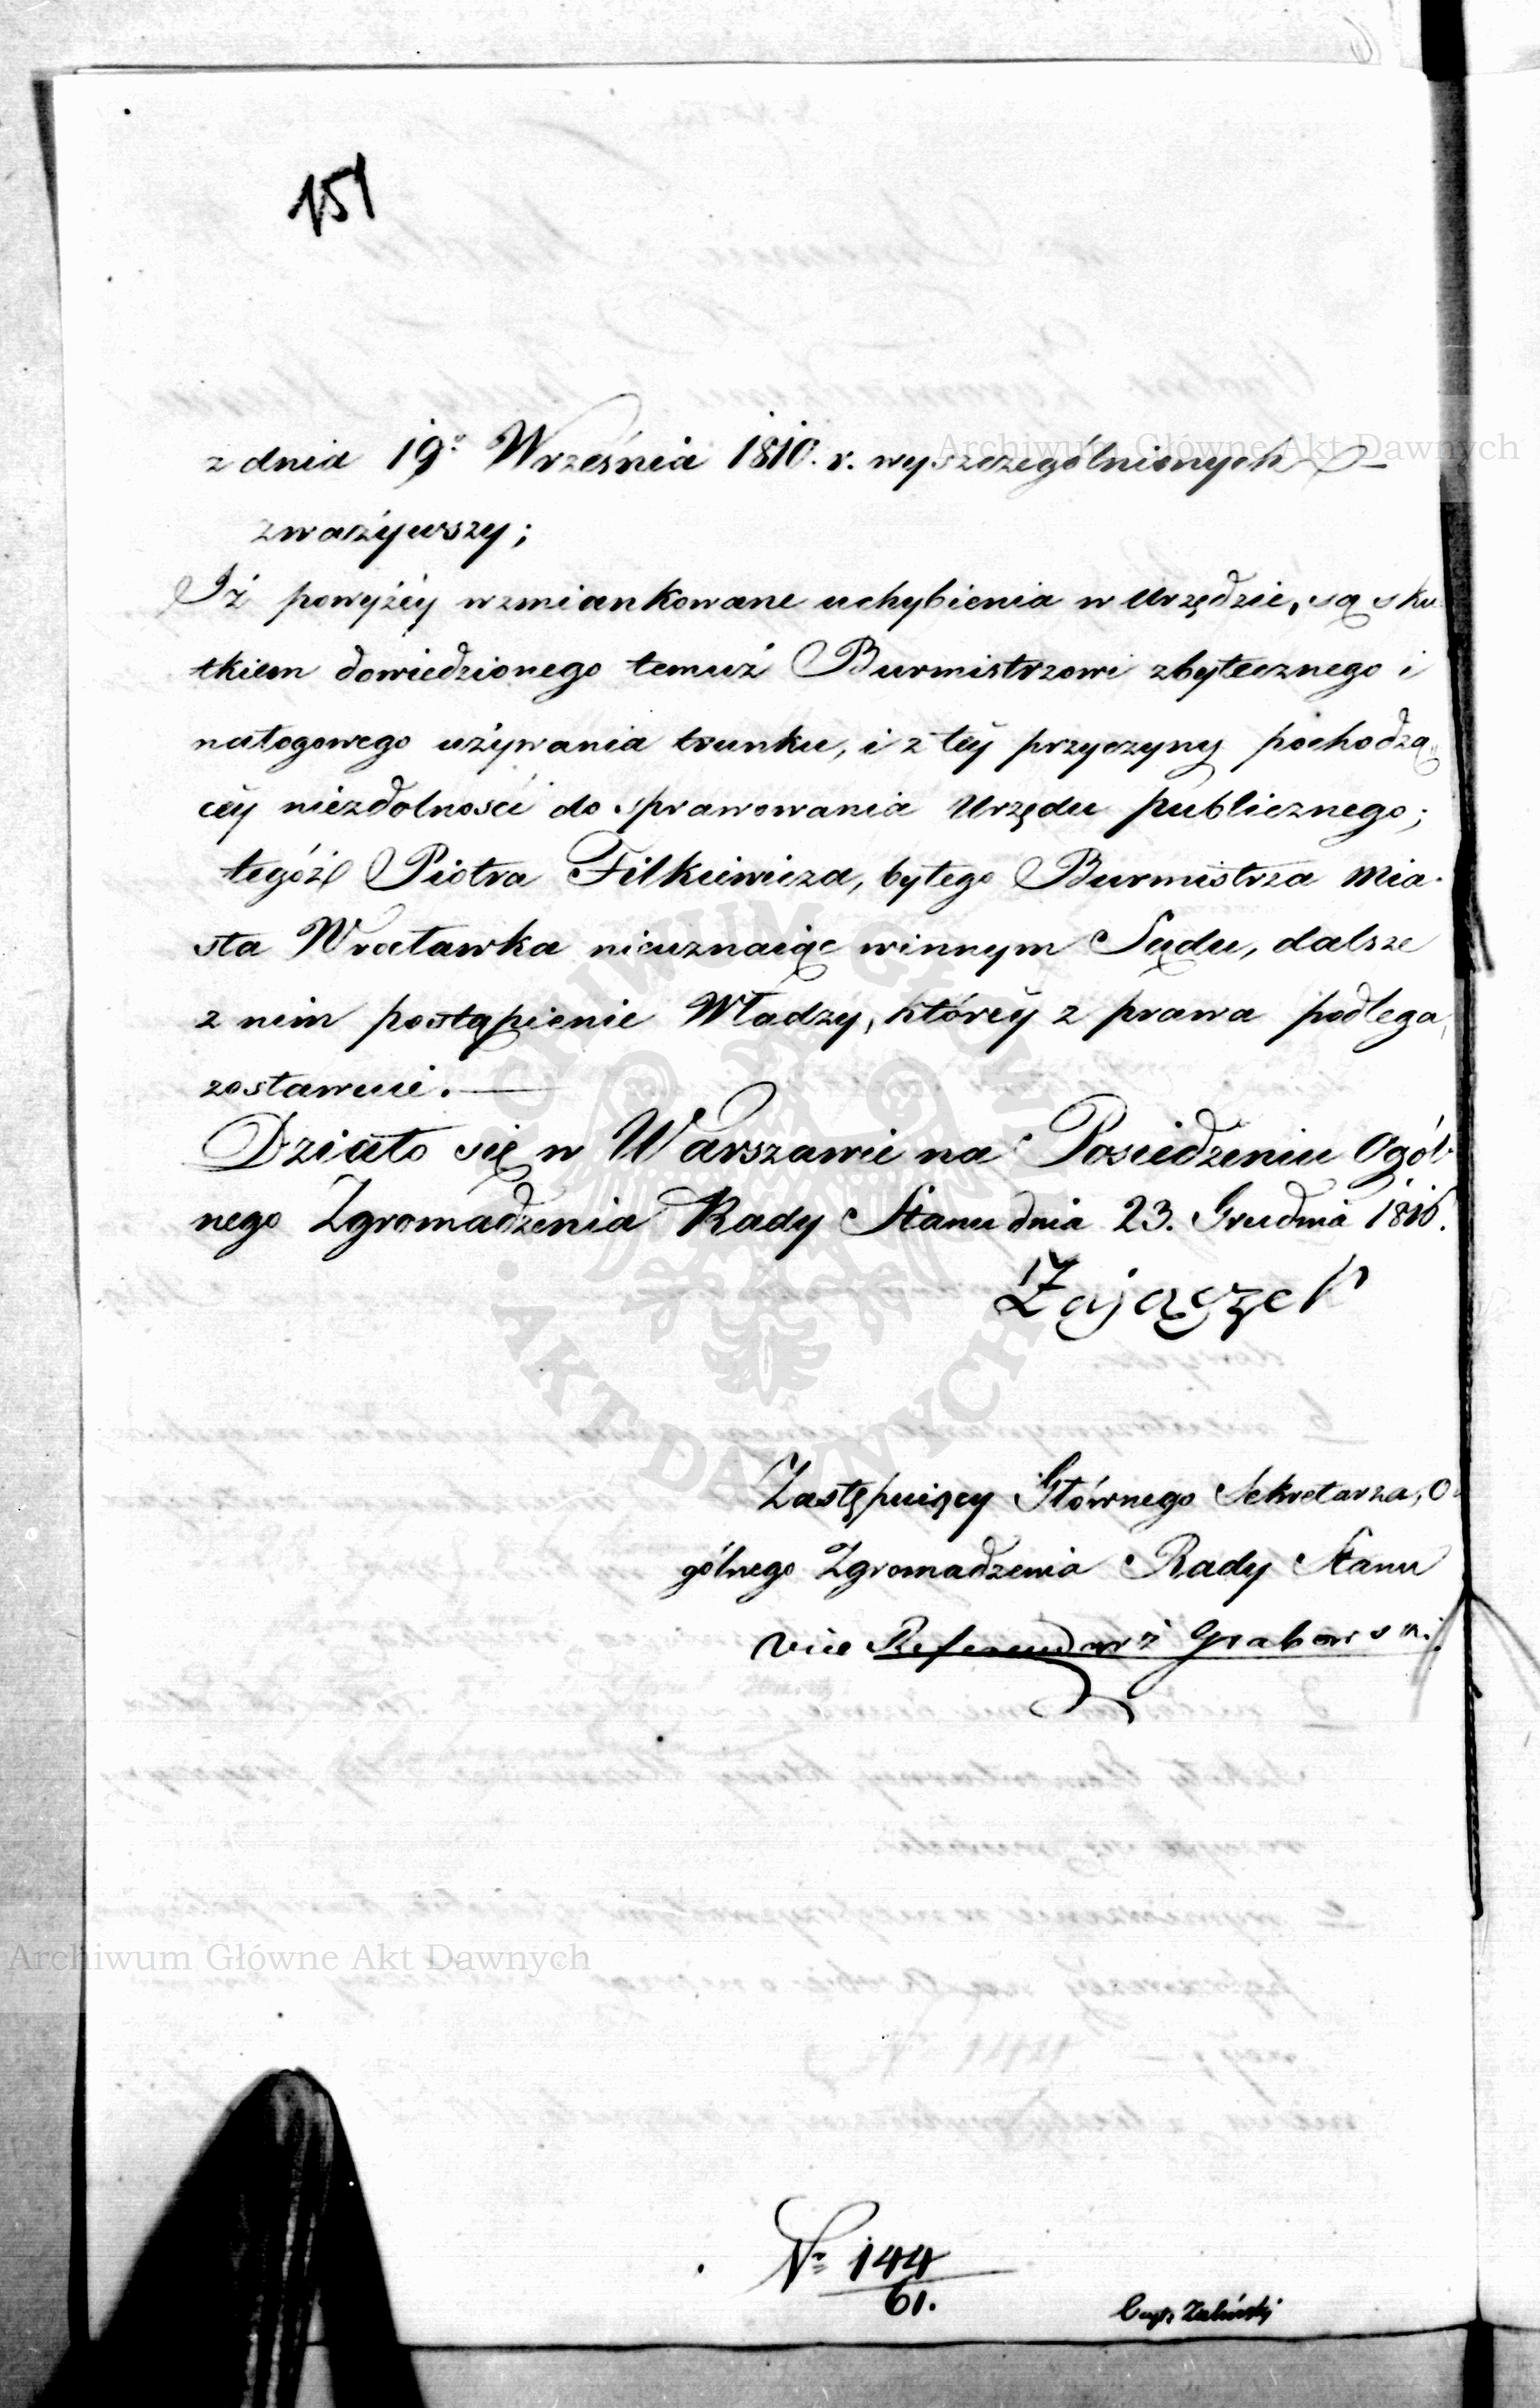 151
z dnia 19º Września 1810. r. wyszczególnionych –
zważywszy;
Iż powyżéy wzmiankowane uchybienia w Urzędzie, są sku
tkiem dowiedzionego temuż Burmistrzowi zbytecznego i
nałogowego używania trunku, i z téy przyczyny pochodzą„
céy niezdolności do sprawowania Urzędu publicznego;
tegóż Piotra Filkiewicza, byłego Burmistrza Mia-
sta Wrocławka nieuznaiąc winnym Sądu, dalsze
z nim postąpienie Władzy, któréy z prawa podlega,
zostawuie. —
Działo się w Warszawie na Posiedzeniu Ogól-
nego Zgromadzenia Rady Stanu dnia 23. Grudnia 1816.
Zajączek
Zastępuiący Głównego Sekretarza, O-
gólnego Zgromadzenia Rady Stanu
Vice Referendarz Grabowski.
Nr 144
61.
Czyt. Zaliński
Archiwum Główne Akt Dawnych
ARCHIWUM GŁÓWNE
AKT DAWNYCH
Archiwum Główne Akt Dawnych